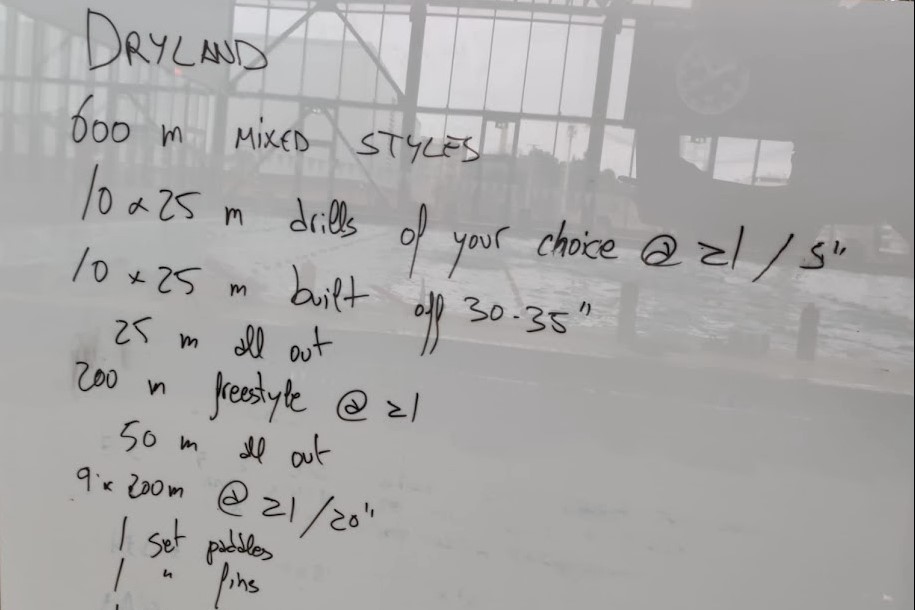 DRYLAND
600 m MIXED STYLES
10 x 25 m drills of your choice @ z1 / 5"
10 x 25 m built off 30-35"
25 m all out
200 m freestyle @ z1
50 m all out
9 x 200m @ z1 / 20"
1 set paddles
1 " fins